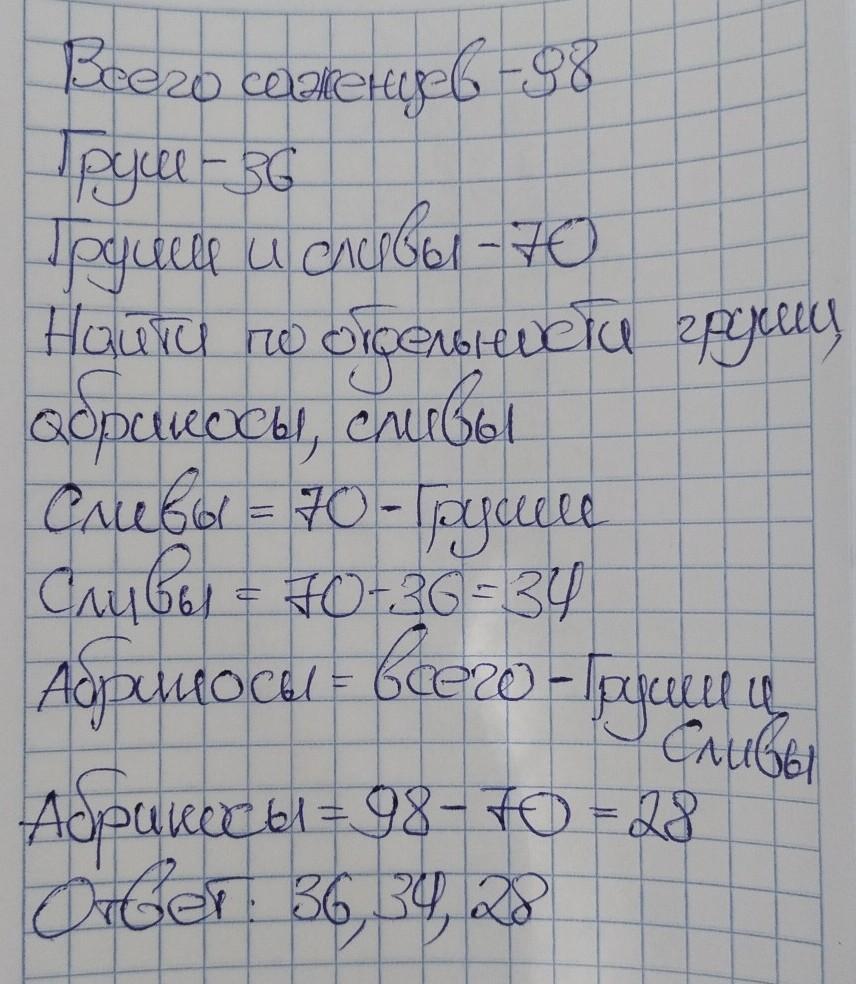 Всего саженцев - 98
Груш - 36
Груши и сливы - 70
Найти по отдельности груши,
абрикосы, сливы
Сливы = 70 - Груши
Сливы = 70 - 36 = 34
Абрикосы = всего - Груши и
Сливы
Абрикосы = 98 - 70 = 28
Ответ: 36, 34, 28